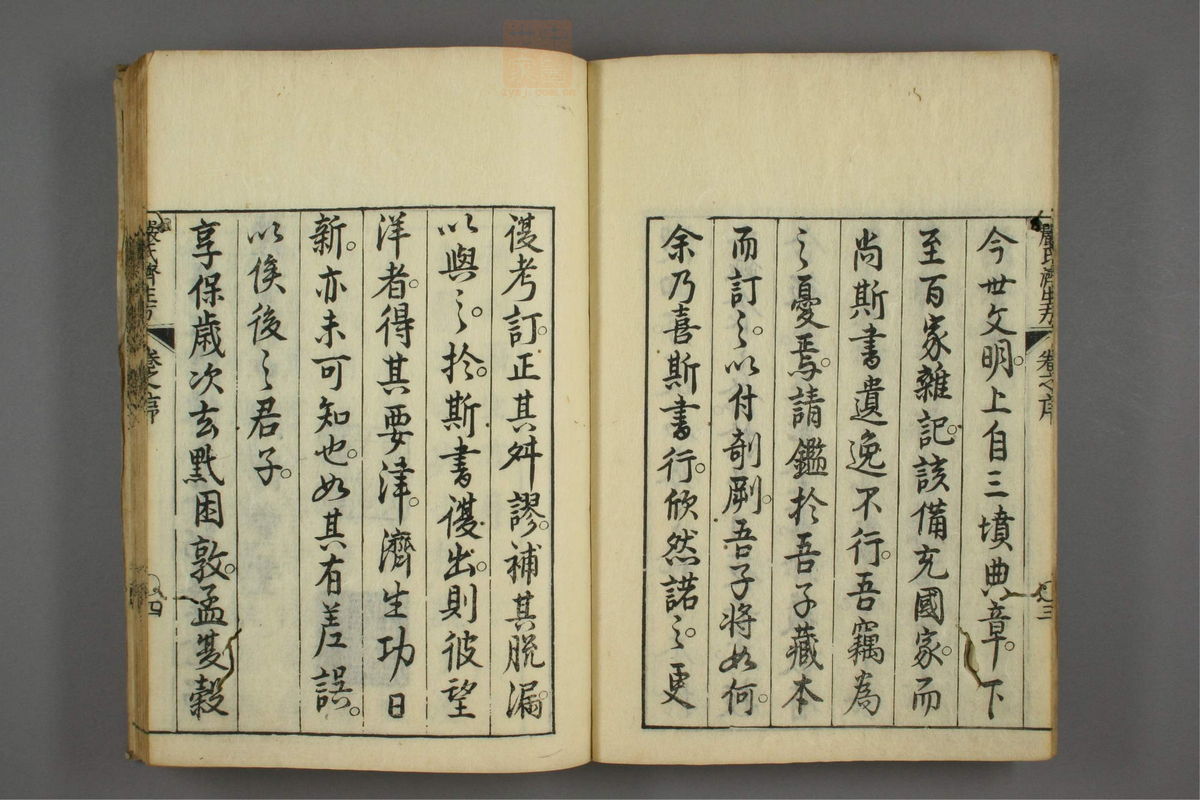 今世文明。上自三墳典章。下
至百家雜記。該備充國家。而
尚斯書遺逸不行。吾竊為
之憂焉。請鑑於吾子藏本
而訂之。以付剞劂。吾子將如何。
余乃喜斯書行。欣然諾之。更
復考訂。正其舛謬。補其脫漏。
以與之。於斯書復出。則彼望
洋者。得其要津。濟生功日
新。亦未可知也。如其有差誤。
以俟後之君子。
享保歲次玄黓困敦。孟夏穀
嚴氏濟生方 卷之序 三
嚴氏濟生方 卷之序 四